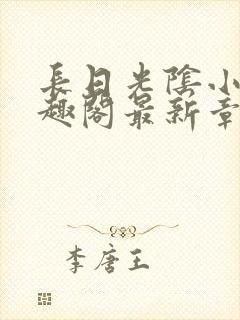 長日光陰小
趣閣最新章
李唐王